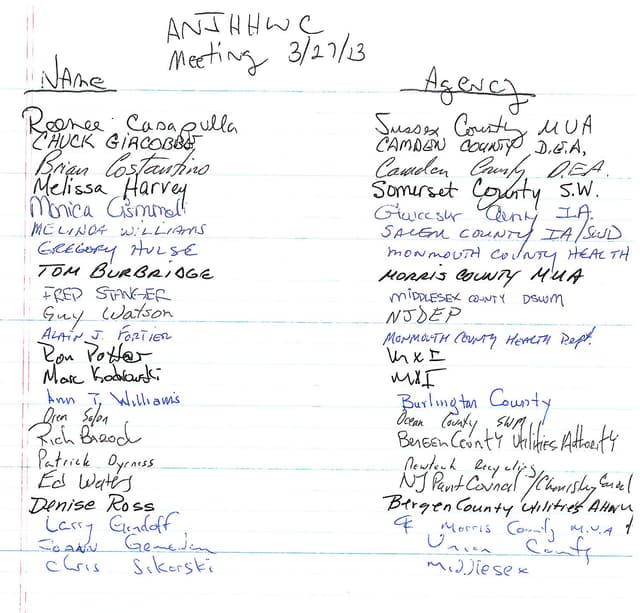 ANJHHWC
Meeting 3/27/13
Name Agency
Roenee Casapulla Sussex County MUA
CHUCK GIACOBBE, CAMDEN COUNTY D.E.A,
Brian Costantino Camden County D.E.A.
Melissa Harvey Somerset County S.W.
Monica Gismondi Gloucester County IA.
MELINDA WILLIAMS SALEM COUNTY IA/SWD
GREGORY HULSE MONMOUTH COUNTY HEALTH
TOM BURBRIDGE MORRIS COUNTY MUA
FRED STANGER MIDDLESEX COUNTY DSWM
Guy Watson NJDEP
ALAIN J. FORTIER MONMOUTH COUNTY HEALTH Dept.
Ron Potter MXI
Marc MXI
Ann T. Williams Burlington County
Oren Ocean County SWM
Rich BERGEN COUNTY Utilities Authority
Patrick Dyrness Newtech Recycling
Ed Waters NJ Paint Council / Chemistry Council
Denise Ross Bergen County Utilities
Larry Gindoff Morris County M.U.A
JoAnn Gemenden Union County
Chris Sikorski Middlesex